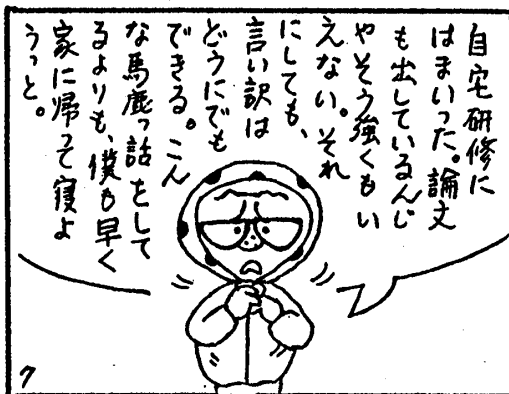 自宅研修に
はまいった。論文
も出しているんじ
ゃそう強くもい
えない。それ
にしても、
言い訳は
どうにでも
できる。こん
な馬鹿っ話をして
るよりも、僕も早く
家に帰って寝よ
うっと。
7